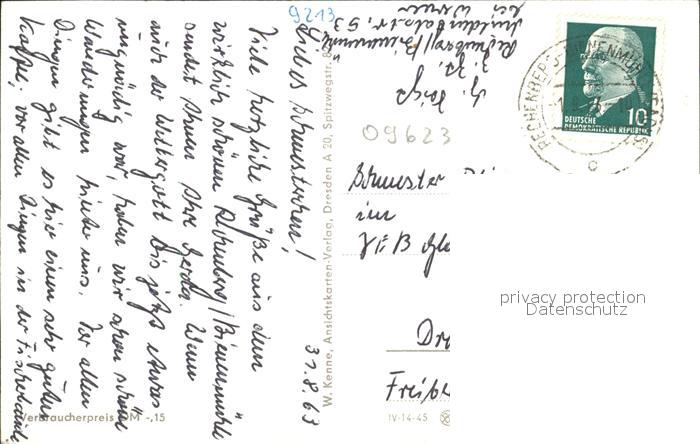 9213
31.8.63
Gutes Schwesterchen!
Viele herzliche Grüße aus dem
wirklich schönen Rechenberg/Bienenmühle
sendet Ihnen Ihre Gerda. Wenn
auch der Wettergott bis jetzt etwas
ungnädig war, haben wir schon schöne
Wanderungen hinter uns. Vor allen
Dingen gibt es hier einen sehr guten
Kaffee, vor allen Dingen in der Fischerbaude
Verbraucherpreis DM -,15
W. Kenne, Ansichtskarten-Verlag, Dresden A 20, Spitzwegstr.
z. Zt.
Rechenberg/Bienenmühle
Muldentalstr. 53
bei
09623
DEUTSCHE
DEMOKRATISCHE REPUBLIK
10
RECHENBERG-BIENENMÜHLE
c
Schwester
im
VEB
privacy protection
Datenschutz
Dr
Freiber
IV-14-45